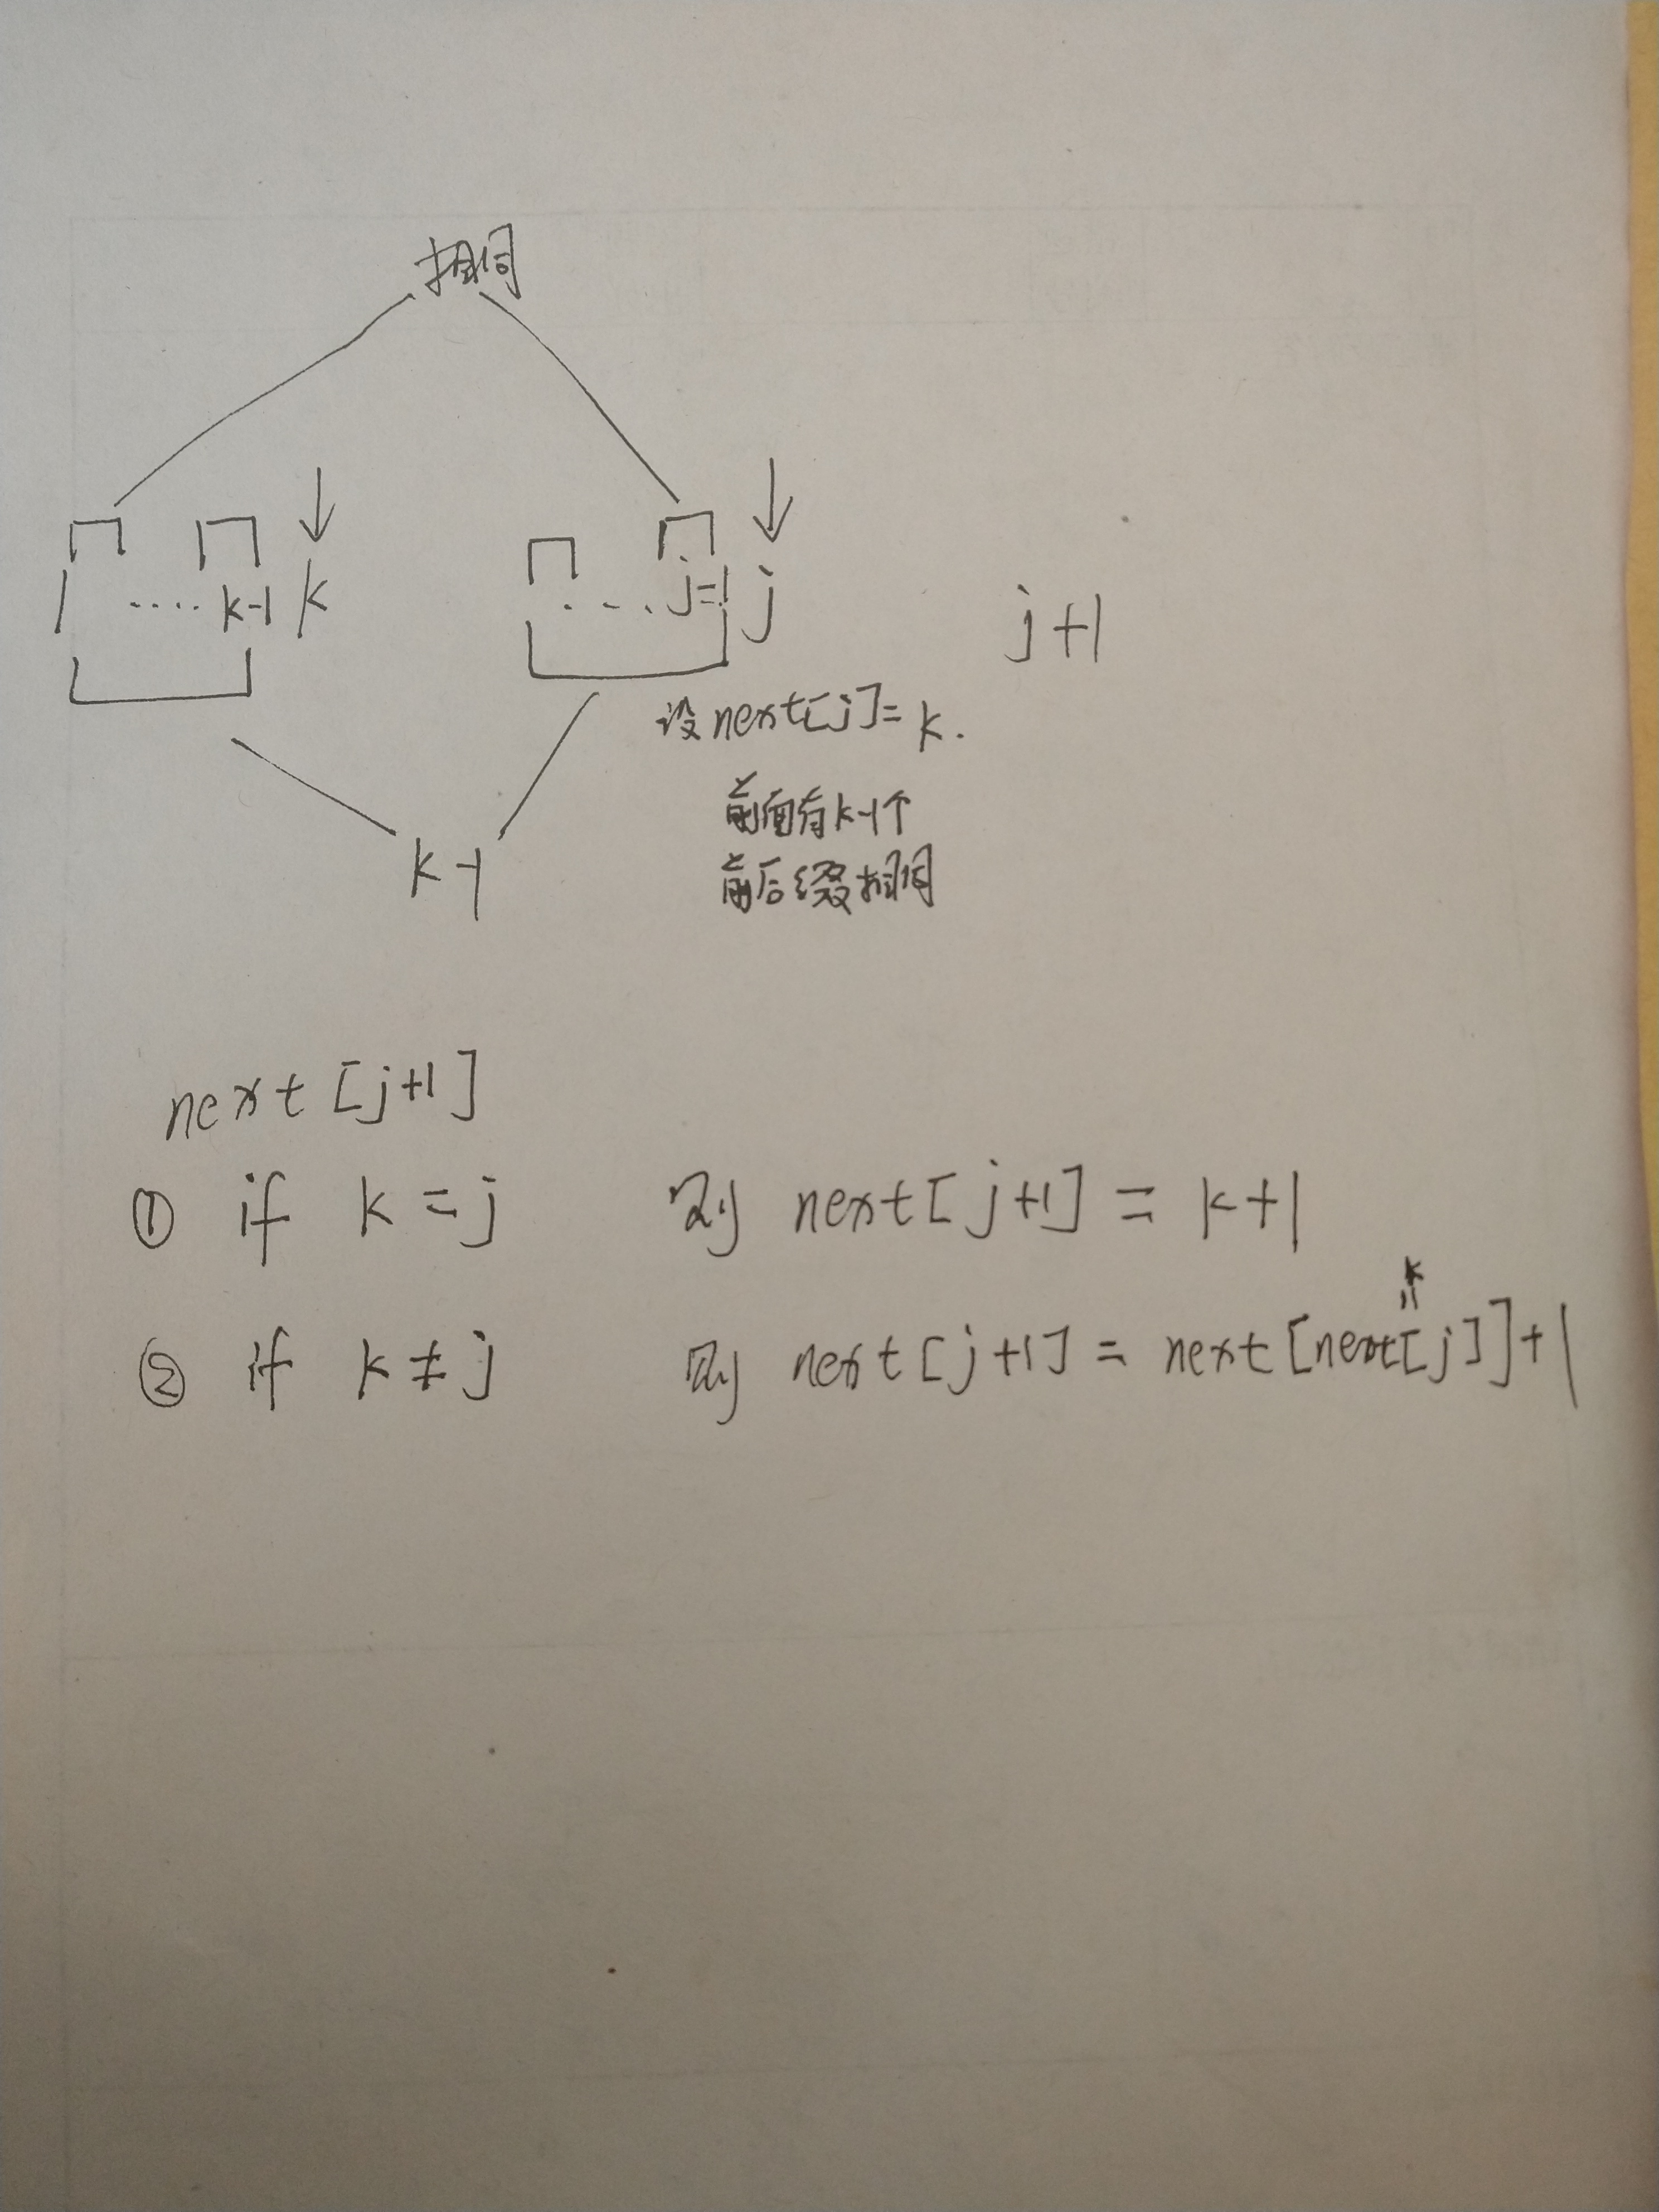 相同
1 ···· k-1 k ···· j-1 j j+1
设next[j]= k.
前面有k-1个
k-1
前后缀相同
next [j+1]
① if k = j 则 next[j+1] = k+1
k
॥
② if k ≠ j 则 next[j+1] = next[next[j]]+1